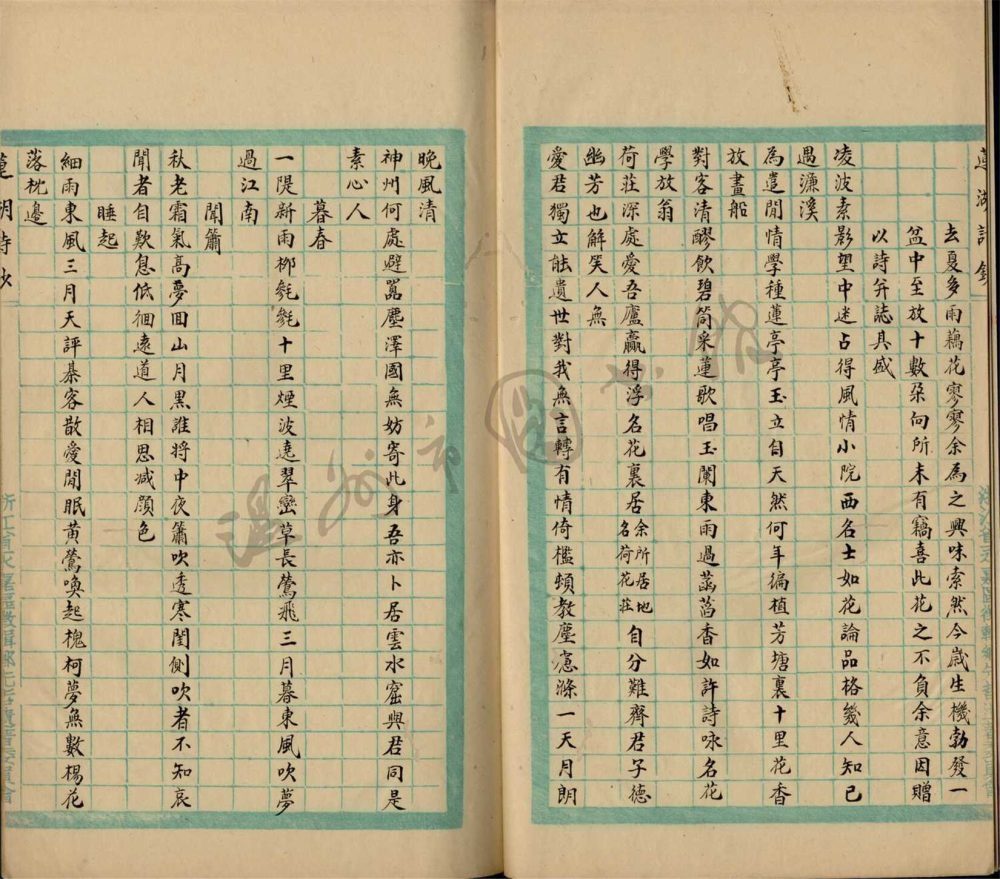 蓮湖詩鈔
去夏多雨藕花寥寥余為之興味索然今歲生機勃發一
盆中至放十數朶向所未有竊喜此花之不負余意因贈
以詩并誌具感
凌波素影望中迷占得風情小院西名士如花論品格幾人知己
遇濂溪
為遣閒情學種蓮亭亭玉立自天然何年徧植芳塘裏十里花香
放畫船
對客清醪飲碧筒采蓮歌唱玉闌東雨過菡萏香如許詩咏名花
學放翁
荷莊深處愛吾廬贏得浮名花裏居余所居地名荷花莊自分難齊君子德
幽芳也解笑人無
愛君獨立能遺世對我無言轉有情倚檻頻教塵慮滌一天月朗
晚風清
神州何處避囂塵澤國無妨寄此身吾亦卜居雲水窟與君同是
素心人
暮春
一隄新雨柳毿毿十里煙波遶翠巒草長鶯飛三月暮東風吹夢
過江南
聞簫
秋老霜氣高夢回山月黑誰將中夜簫吹透寒閨側吹者不知哀
聞者自歎息低徊遠道人相思減顏色
睡起
細雨東風三月天評棊客散愛閒眠黃鶯喚起槐柯夢無數楊花
落枕邊
蓮湖詩鈔
溫州市圖書館